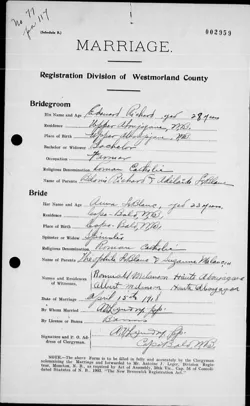 No. 77
(Schedule B.) 002959
MARRIAGE.
Registration Division of Westmorland County
Bridegroom
His Name and Age Edouard Richard age 28 years
Residence Upper Aboujagane, N.B.
Place of Birth Upper Aboujagane N.B.
Bachelor or Widower Bachelor
Occupation Farmer
Religious Denomination Roman Catholic
Name of Parents Richard & Adelaide LeBlanc
Bride
Her Name and Age Anna LeBlanc, age 23 years
Residence Cape-Bald, N.B.
Place of Birth Cape-Bald, N.B.
Spinster or Widow Spinster
Religious Denomination Roman Catholic
Name of Parents Theophile LeBlanc & Suzanne Melanson
Names and Residences of Witnesses. Haute Aboujagane
Albert Haute Aboujagane
Date of Marriage April 15th 1918
By Whom Married
By License or Banns Banns
Signature and P. O. Address of Clergyman.
Cape Bald N.B.
NOTE.—The above Form is to be filled in fully and accurately by the Clergyman
solemnizing the Marriage and forwarded to Mr. Antoine J. Leger, Division Registrar,
Moncton, N. B., as required by Act of Assembly, 50th Vic. Cap. 56 of Consolidated
Statutes of N. B. 1903. "The New Brunswick Registration Act."